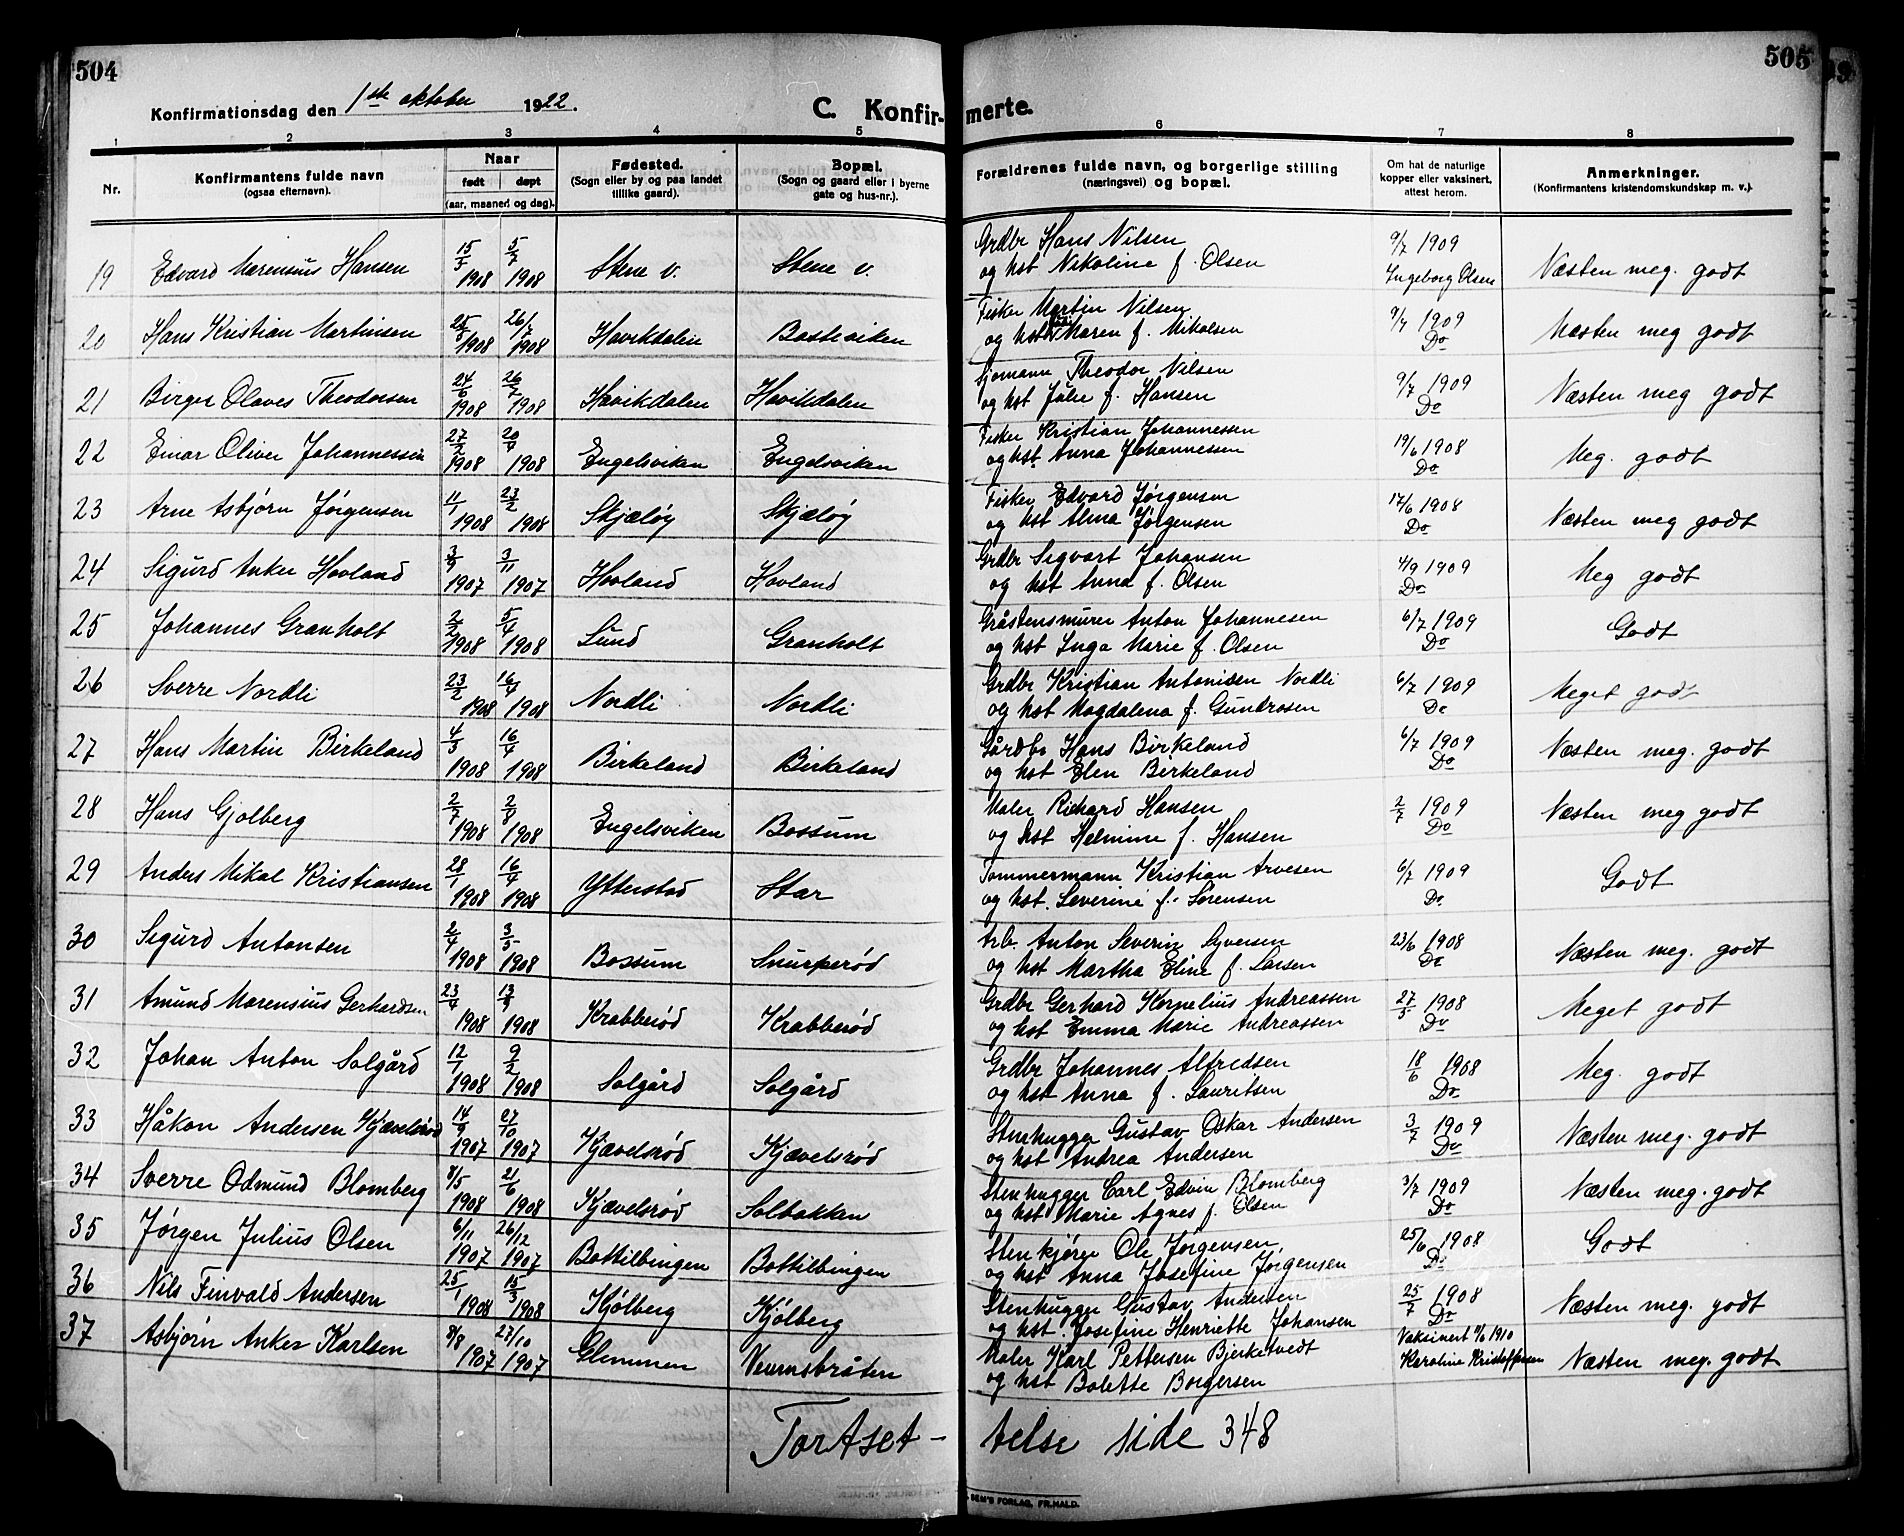 504
505
Konfirmationsdag den 1ste oktober 1922.
C. Konfir-merte.
1 2 3 4 5 6 7 8
Nr.
Konfirmantens fulde navn
(ogsaa efternavn).
Naar
født døpt
(aar, maaned og dag).
Fødested.
(Sogn eller by og paa landet
tillike gaard).
Bopæl.
(Sogn og gaard eller i byerne
gate og hus-nr.).
Forældrenes fulde navn, og borgerlige stilling
(næringsvei) og bopæl.
Om hat de naturlige
kopper eller vaksinert,
attest herom.
Anmerkninger.
(Konfirmantens kristendomskundskap m. v.).
19 Edvard Marensius Hansen 15/5 1908 5/7 1908 Stene v. Stene v. Grdbr Hans Nilsen 9/7 1909
og hst Nikoline f. Olsen Ingeborg Olsen Næsten meg. godt
20 Hans Kristian Martinsen 25/5 1908 26/7 1908 Havikdalen Basteviken Fisker Martin Nilsen 9/7 1909
og hst Maren f. Mikalsen Do Næsten meg godt
21 Birger Olaves Theodorsen 24/6 1908 26/7 1908 Havikdalen Havikdalen Sjømann Theodor Nilsen 9/7 1909
og hst Julie f. Hansen Do Næsten meg godt
22 Einar Oliver Johannessen 27/2 1908 20/4 1908 Engelsviken Engelsviken Fisker Kristian Johannesen 19/6 1908
og hst. Anna Johannesen Do Meg. godt
23 Arne Asbjørn Jørgensen 11/1 1908 23/2 1908 Skjæløy Skjæløy Fisker Edvard Jørgensen 17/6 1908
og hst Alma Jørgensen Do Næsten meg godt
24 Sigurd Anker Hovland 3/9 1907 3/11 1907 Hovland Hovland Grdbr Sigvart Johansen 4/9 1909
og hst Anna f. Olsen Do Meg godt
25 Johannes Granholt 2/2 1908 5/4 1908 Lund Granholt Gråstensmurer Anton Johannesen 6/7 1909
og hst Inga Marie f. Olsen Do Godt
26 Sverre Nordli 23/2 1908 16/4 1908 Nordli Nordli Grdbr Kristian Antonisen Nordli 6/7 1909
og hst Magdalena f. Gundrosen Do Meget godt
27 Hans Martin Birkeland 4/3 1908 16/4 1908 Birkeland Birkeland Gårdbr Hans Birkeland 6/7 1909
og hst Elen Birkeland Do Næsten meg. godt
28 Hans Gjølberg 2/7 1908 2/8 1908 Engelsviken Bossum Maler Richard Hansen 2/7 1909
og hst Helmine f. Hansen Do Næsten meg godt
29 Anders Mikal Kristiansen 28/1 1908 16/4 1908 Ytterstad Star Tømmermann Kristian Arvesen 6/7 1909
og hst. Severine f. Sørensen Do Godt
30 Sigurd Antonsen 2/4 1908 3/5 1908 Bossum Snurperød Arb. Anton Severin Syversen 23/6 1908
og hst Martha Eline f. Larsen Do Næsten meg. godt
31 Amund Marensius Gerhardsen 23/4 1908 13/8 1908 Krabberød Krabberød Grdbr Gerhard Kornelius Andreassen 27/5 1908
og hst Emma Marie Andreassen Do Meget godt
32 Johan Anton Solgård 12/1 1908 9/2 1908 Solgård Solgård Grdbr Johannes Alfredsen 18/6 1908
og hst Anna f. Lauritsen Do Meg. godt
33 Håkon Andersen Kjævelsrød 14/9 1907 27/10 1907 Kjævelsrød Kjævelsrød Stenhugger Gustav Oskar Andersen 3/7 1909
og hst Andrea Andersen Do Næsten meg. godt
34 Sverre Odmund Blomberg 8/5 1908 21/6 1908 Kjævelsrød Solbakken Stenhugger Carl Edvin Blomberg 3/7 1909
og hst Marie Agnes f. Olsen Do Næsten meg. godt
35 Jørgen Julius Olsen 6/11 1907 26/12 1907 Bottilbingen Bottilbingen Stenkjører Ole Jørgensen 25/6 1908
og hst Anna Josefine Jørgensen Do Godt
36 Nils Finvald Andersen 25/1 1908 15/3 1908 Kjølberg Kjølberg Stenhugger Gustav Andersen 25/7 1908
og hst. Josefine Henriette Johansen Do Næsten meg. godt
37 Asbjørn Anker Karlsen 8/8 1907 27/10 1907 Glemmen Veumsbråten Maler Karl Pettersen Bjerketvedt Vaksinert 11/6 1910
og hst Bolette Borgersen Karoline Kristoffersen Næsten meg. godt
Fortset-telse side 348
SEM'S FORLAG, FR.HALD.